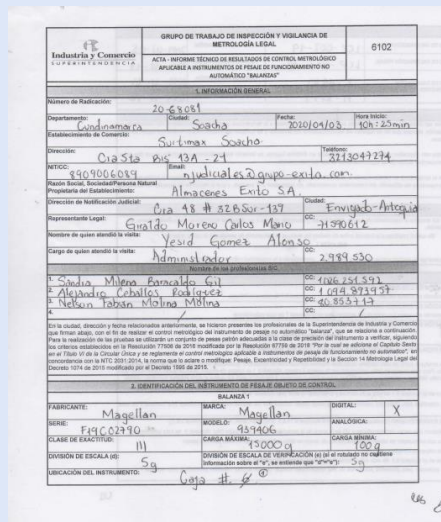 Industria y Comercio
SUPERINTENDENCIA
GRUPO DE TRABAJO DE INSPECCIÓN Y VIGILANCIA DE METROLOGÍA LEGAL
6102
ACTA - INFORME TÉCNICO DE RESULTADOS DE CONTROL METROLÓGICO APLICABLE A INSTRUMENTOS DE PESAJE DE FUNCIONAMIENTO NO AUTOMÁTICO "BALANZAS"
1. INFORMACIÓN GENERAL
Número de Radicación: 20-68081
Departamento: Cundinamarca Ciudad: Soacha Fecha: 2020/04/03 Hora Inicio: 10h:25min
Establecimiento de Comercio: Surtimax Soacha
Dirección: Cra 5ta Bis 13A - 21 Teléfono: 3213047274
NIT/CC: 8909006089 Email: njudiciales@grupo-exito.com
Razón Social, Sociedad/Persona Natural
Propietaria del Establecimiento: Almacenes Exito S.A.
Dirección de Notificación Judicial: Cra 48 # 32BSur-139 Ciudad: Envigado-Antioquia
Representante Legal: Giraldo Moreno Carlos Mario CC: 71590612
Nombre de quien atendió la visita: Yesid Gomez Alonso
Cargo de quien atendió la visita: Administrador CC: 2.989.530
Nombre de los profesionales SIC
1. Sandra Milena Baracaldo Gil CC:
2. Alejandro Ceballos Rodriguez CC: 1.094.893957
3. Nelson Fabian Molina Molina CC:
4. CC:
En la ciudad, dirección y fecha relacionados anteriormente, se hicieron presentes los profesionales de la Superintendencia de Industria y Comercio
que firman abajo, con el fin de realizar el control metrológico del instrumento de pesaje no automático "balanza", que se relaciona a continuación.
Para la realización de las pruebas se utilizarán un conjunto de pesas patrón adecuadas a la clase de precisión del instrumento a verificar, siguiendo
los criterios establecidos en la Resolución 77506 de 2016 modificada por la Resolución 67759 de 2018 "Por la cual se adiciona el Capítulo Sexto
en el Título VI de la Circular Única y se reglamenta el control metrológico aplicable a instrumentos de pesaje de funcionamiento no automático", en
concordancia con la NTC 2031:2014, la norma que lo aclare o modifique: Pesaje, Excentricidad y Repetibilidad y la Sección 14 Metrología Legal del
Decreto 1074 de 2015 modificado por el Decreto 1595 de 2015.
2. IDENTIFICACIÓN DEL INSTRUMENTO DE PESAJE OBJETO DE CONTROL
BALANZA 1
FABRICANTE: Magellan MARCA: Magellan DIGITAL: X
SERIE: F19C02790 MODELO: 939406 ANALÓGICA:
CLASE DE EXACTITUD: III CARGA MÁXIMA: 15000g CARGA MÍNIMA: 100g
DIVISIÓN DE ESCALA (d): 5g DIVISIÓN DE ESCALA DE VERIFICACIÓN (e) (si el rotulado no contiene
información sobre el "e", se entiende que "d"="e"): 5g
UBICACIÓN DEL INSTRUMENTO: Caja #.